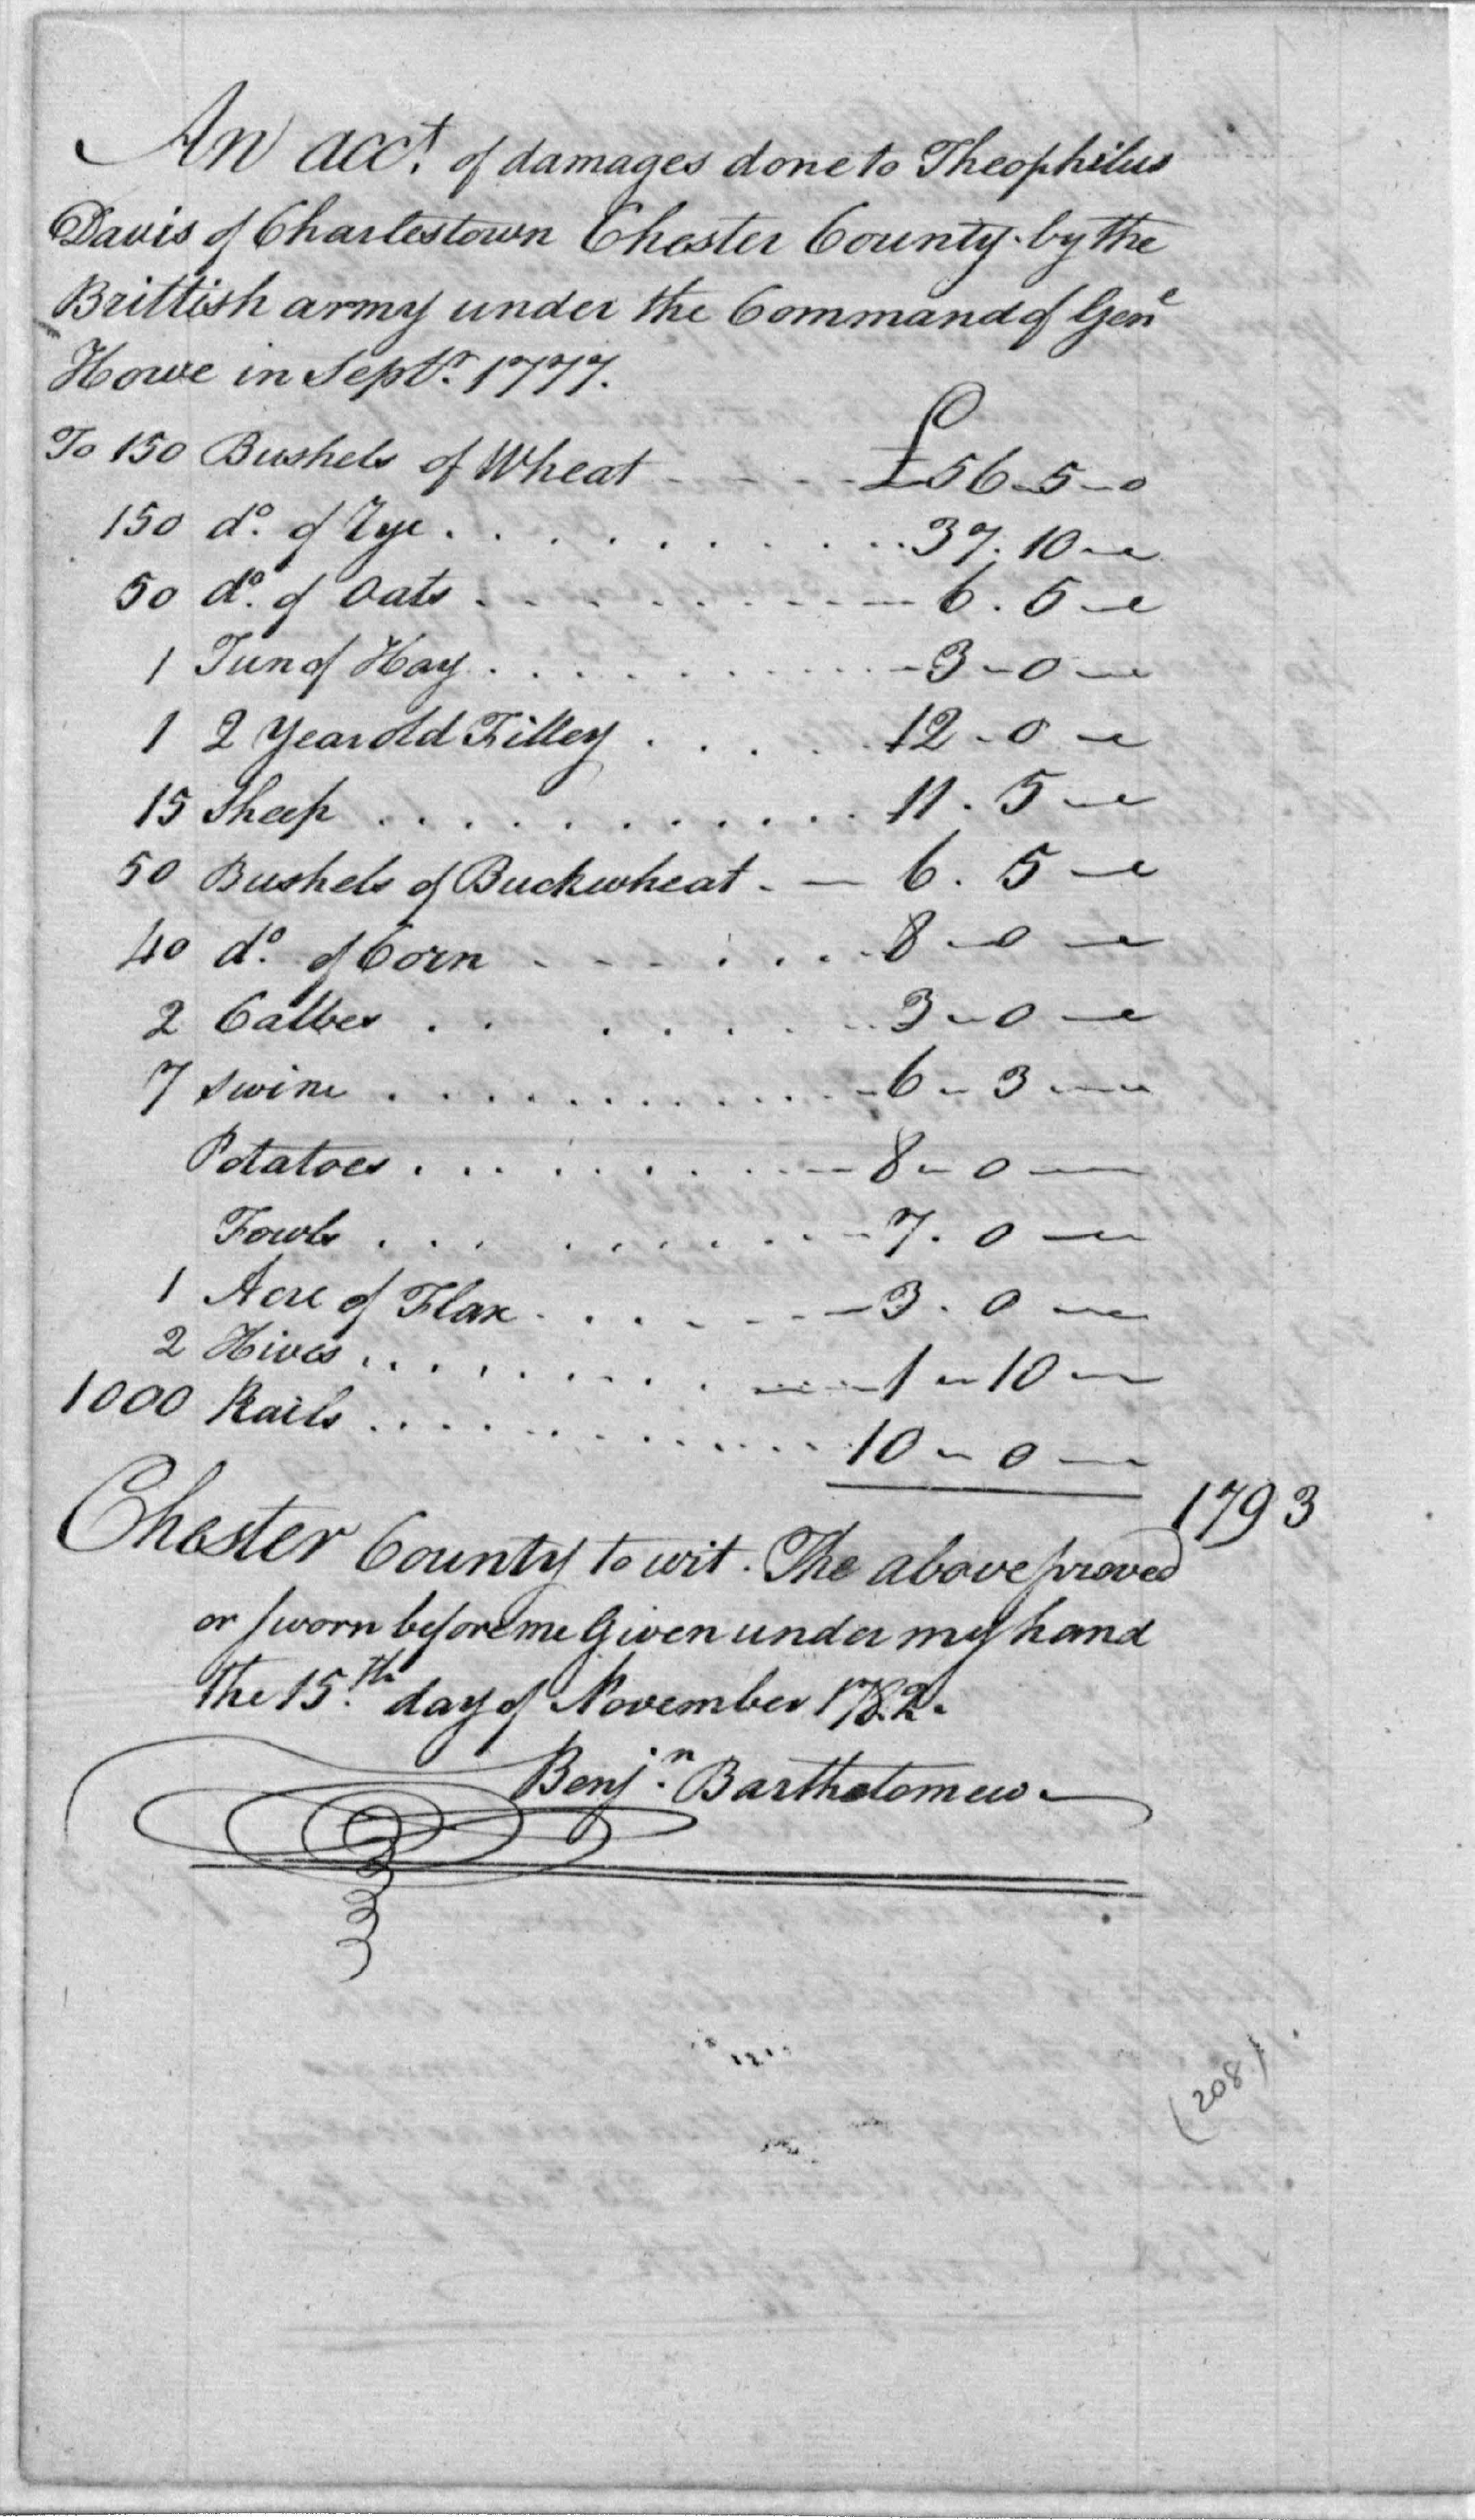 An acct. of damages done to Theophilus
Davis of Charlestown Chester County by the
Brittish army under the Command of Genl
Howe in Septr. 1777.
To 150 Bushels of Wheat - - - - £56-5-0
150 do. of Rye . . . . . . . . . . 37.10-
50 do. of Oats - - - - - - - - 6.5-
1 Tun of Hay . . . . . . . . . -3-0-
1 2 Year old Filley . . . . 12-0-
15 Sheep . . . . . . . . . . 11.5-
50 Bushels of Buckwheat - - 6.5-
40 do. of Corn - - - . . . . 8-0-
2 Calves . . . . . . . . 3-0-
7 Swine . . . . . . . . . . . -6-3-
Potatoes . . . . . . . . . . -8-0-
Fowls . . . . . . . . . . -7.0-
1 Acre of Flax . . . . - - -3.0-
2 Hives . . . . . . . . -1-10-
1000 Rails . . . . . . . . . . 10-0-
1793
Chester County to wit. The above proved
or sworn before me Given under my hand
the 15th. day of November 1782.
Benjn. Bartholomew
(208)